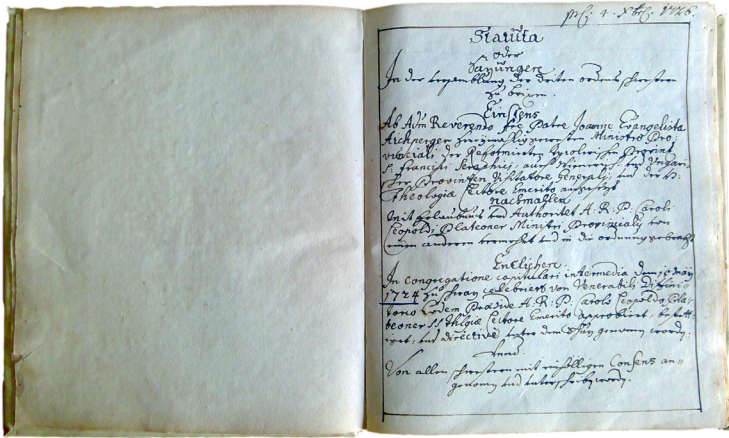 4. Xbr. 1726.
Statuta
oder
Sazungen
In der versamblung der driten ordens schwestern
zu brixen.
Einstens
Ab Adm Reverendo Fre Patre Joanne Evangelista
Aichperger Ministro Pro
vinciali der Reformierten Tyrolerischen Provinz
S. Francisci Seraphici, auch
Provinzen Visitatore Generali, und der H:
Theologiæ Lectore Emerito aufgesezt
nachmallen
Mit Erlaubnus und Authoritet A. R. P. Caroli
Leopoldi Plateoner Ministri Provincialis von
einem anderen vermehrt und in die ordnung gebracht
Endlichen.
In Congregatione capitulari intermedia dem 15 May
1724 zu celebriert von Venerabili Diffini-
torio Eodem Præside A. R. P. Carolo Leopoldo Pla-
teoner SS Thlgiæ Lectore Emerito approbiert, bestätt-
und directive
Unnd.
Von allen schwestern mit einhölligen Consens an-
genomen und unterschriben worden.